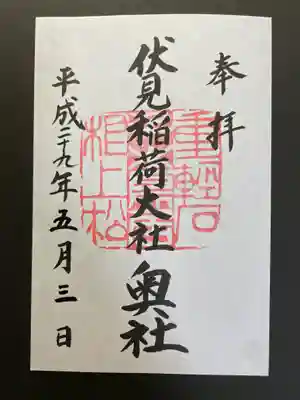 奉拝
伏見稲荷大社 奥社
平成二十九年五月三日
重軽石
根上松